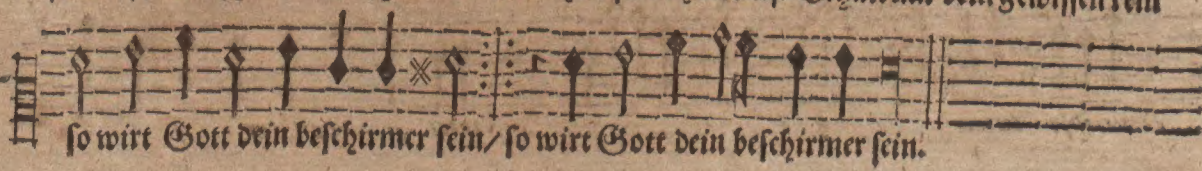 gewissen rein
so wirt Gott dein beschirmer sein/ so wirt Gott dein beschirmer sein.